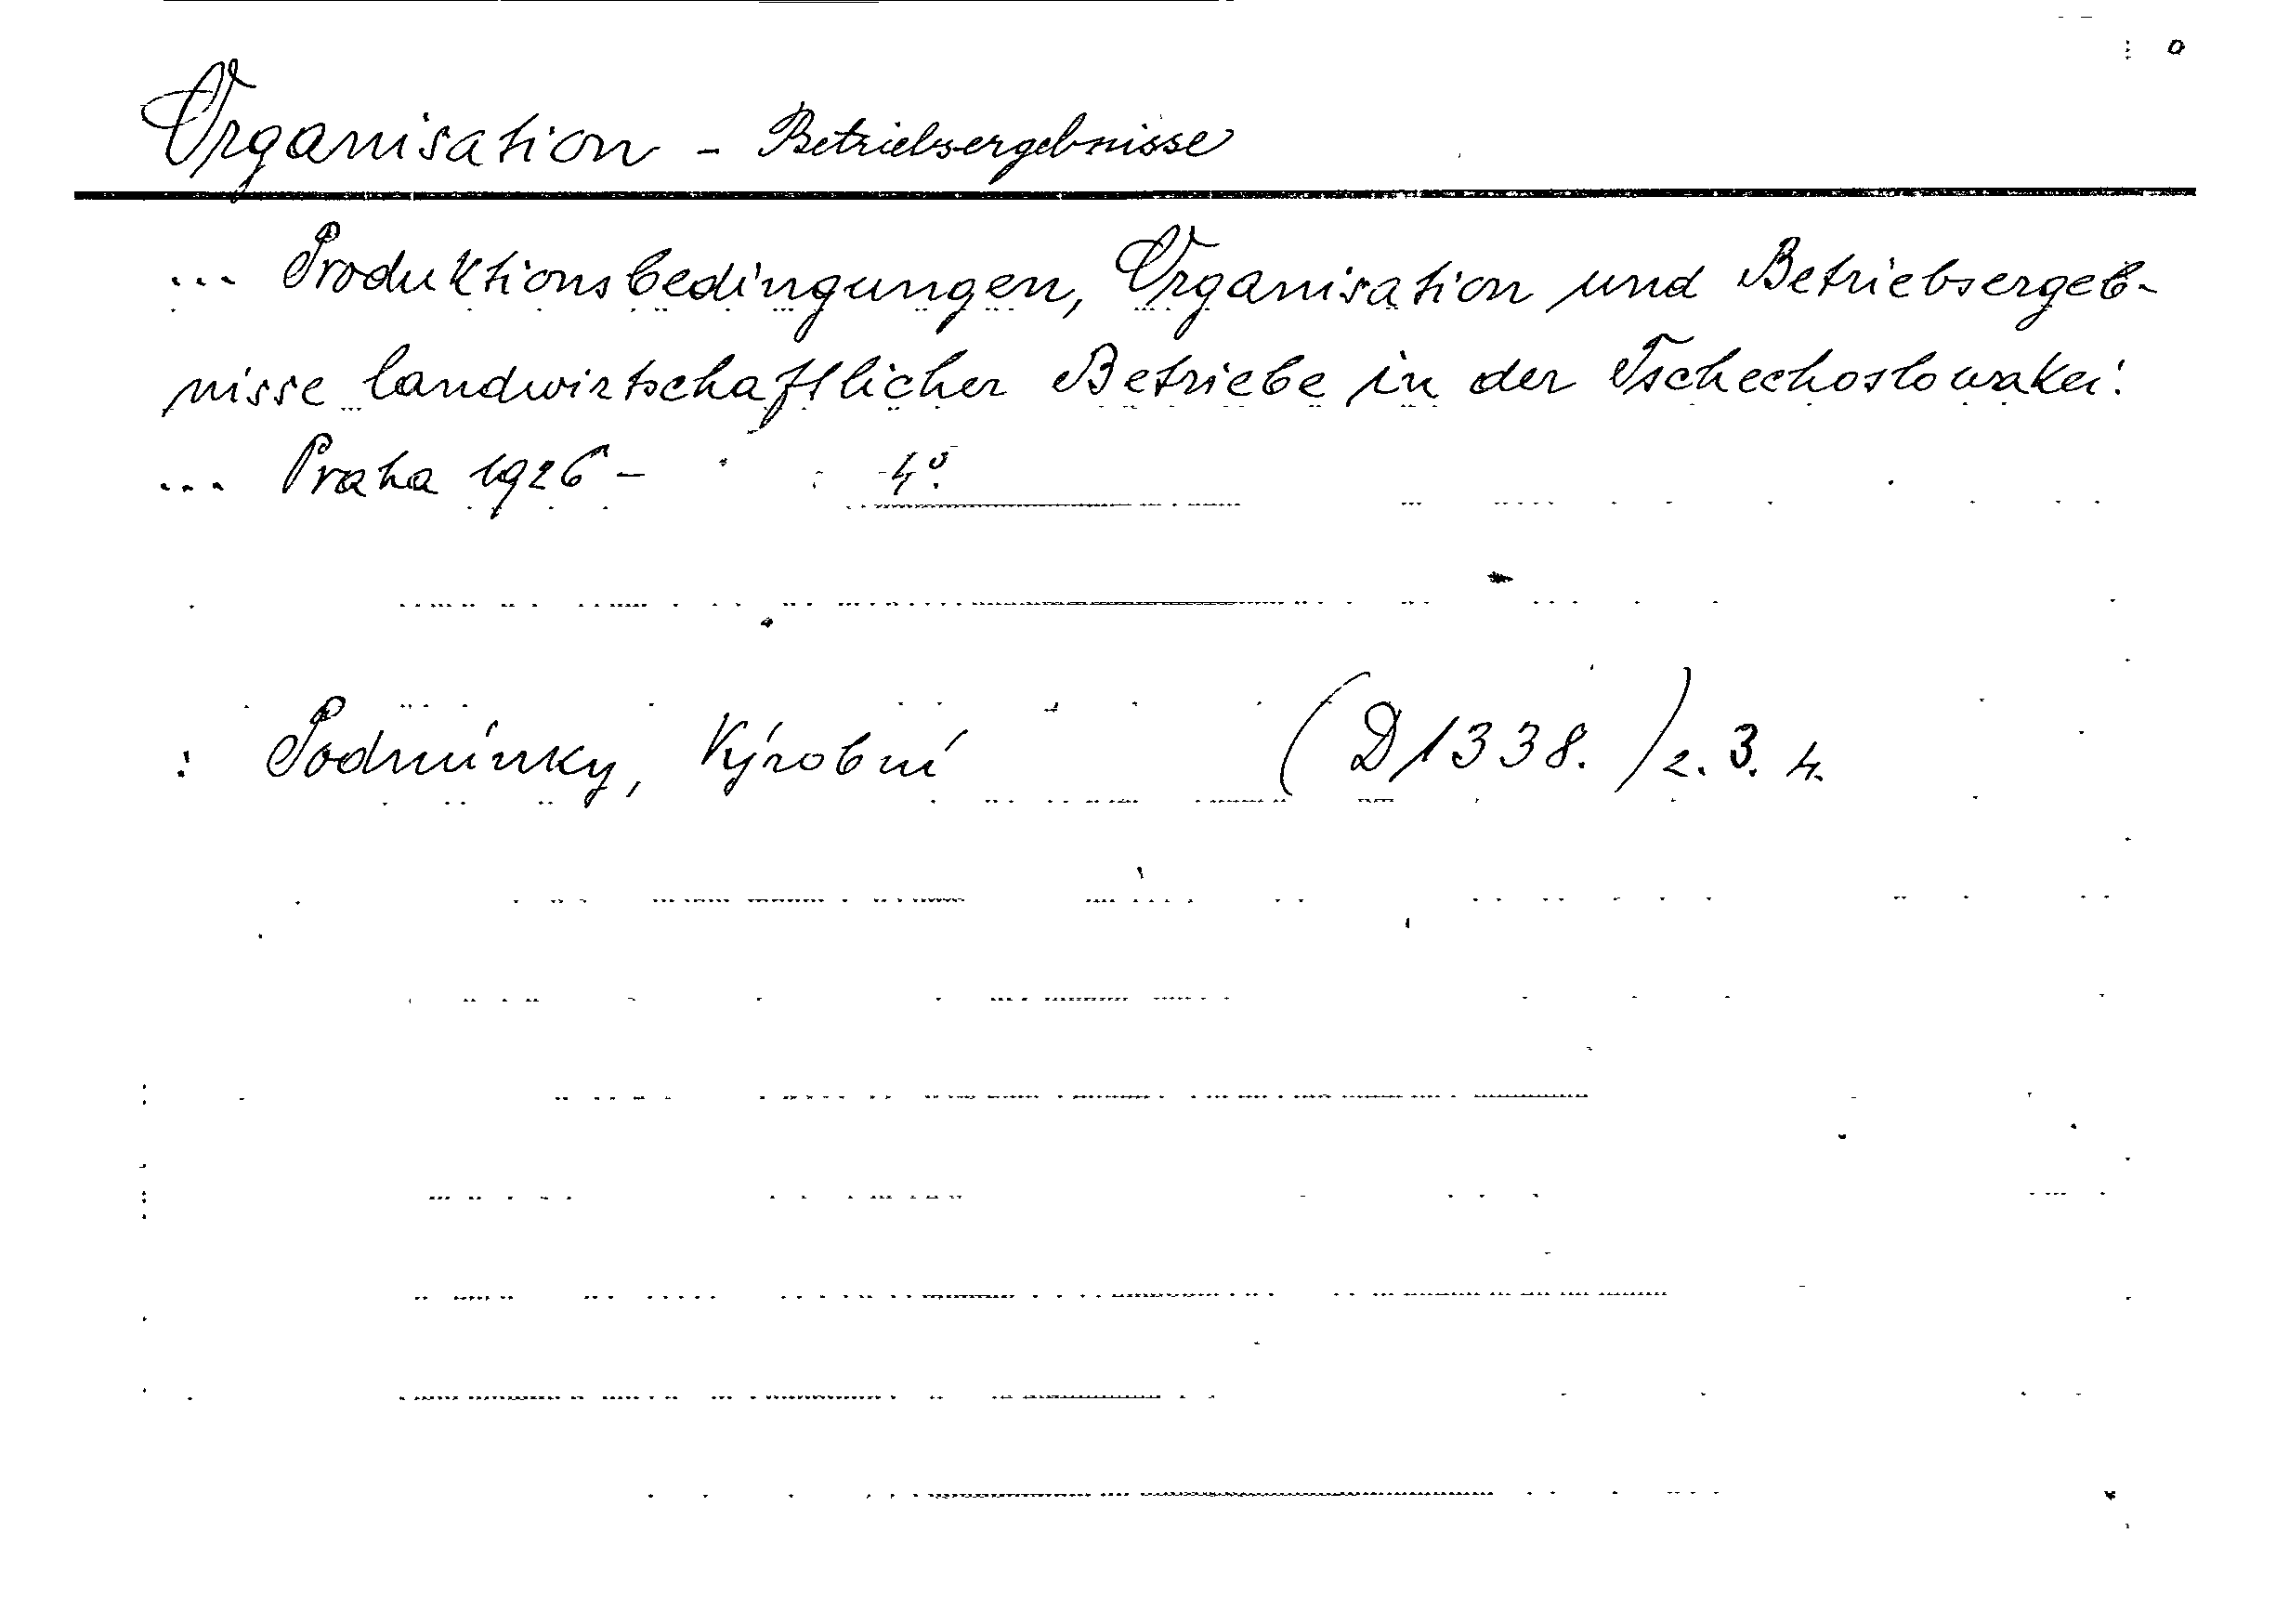 Organisation - Betriebsergebnisse
... Produktionsbedingungen, Organisation und Betriebsergeb-
nisse landwirtschaftlicher Betriebe in der Tschechoslowakei.
... Praha 1926 - 4°.
: Podmínky, Výrobní (D1338.) 2. 3. 4.